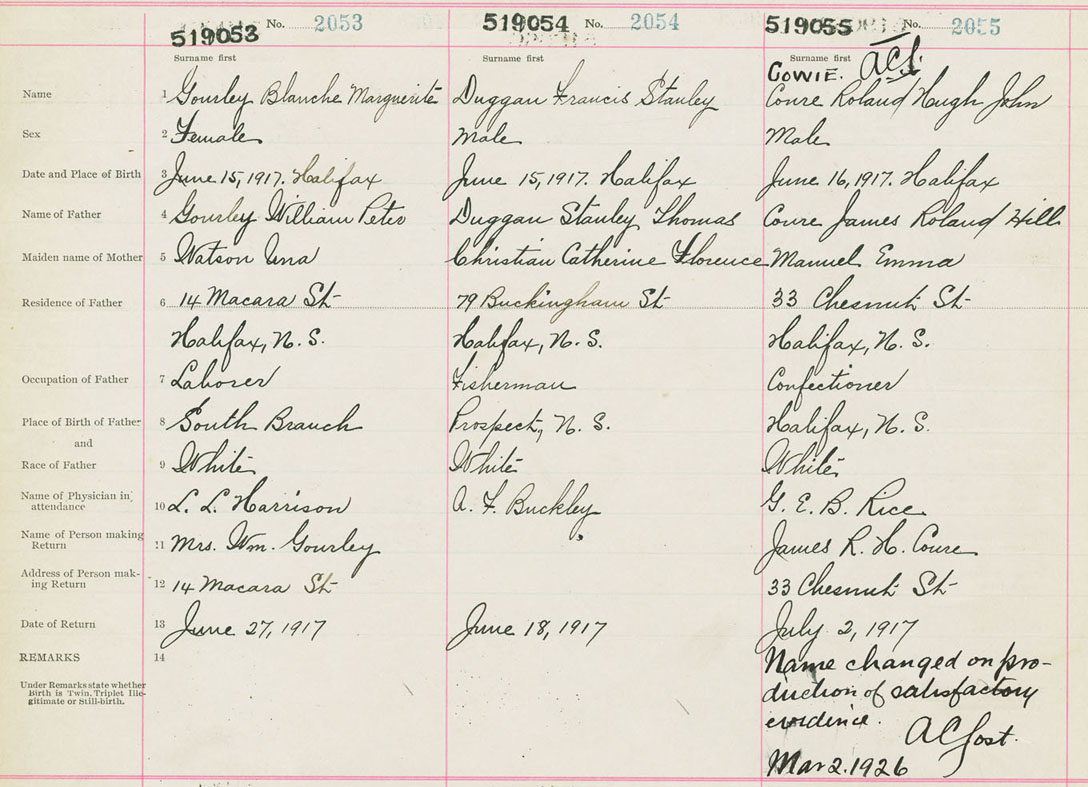 519053 No. 2053 519054 No. 2054 519055 No. 2055
Surname first Surname first Surname first
COWIE.
Name 1 Gourley Blanche Marguerite Duggan Francis Stanley Coure Roland Hugh John
Sex 2 Female Male Male
Date and Place of Birth 3 June 15, 1917. Halifax June 15, 1917. Halifax June 16, 1917. Halifax
Name of Father 4 Gourley William Peter Duggan Stanley Thomas Coure James Roland Hill
Maiden name of Mother 5 Watson Una Christian Catherine Florence Manuel Emma
Residence of Father 6 14 Macara St 79 Buckingham St 33 Chesnut St
Halifax, N. S. Halifax, N. S. Halifax, N. S.
Occupation of Father 7 Laborer Fisherman Confectioner
Place of Birth of Father 8 South Branch Prospect, N. S. Halifax, N. S.
and
Race of Father 9 White White White
Name of Physician in
attendance 10 L. L. Harrison A. F. Buckley G. E. B. Rice
Name of Person making
Return 11 Mrs. Wm. Gourley James R. H. Coure
Address of Person mak-
ing Return 12 14 Macara St 33 Chesnut St
Date of Return 13 June 27, 1917 June 18, 1917 July 2, 1917
REMARKS 14 Name changed on pro-
Under Remarks state whether
Birth is Twin, Triplet Ille-
gitimate or Still-birth.
duction of satisfactory
evidence.
Mar 2. 1926